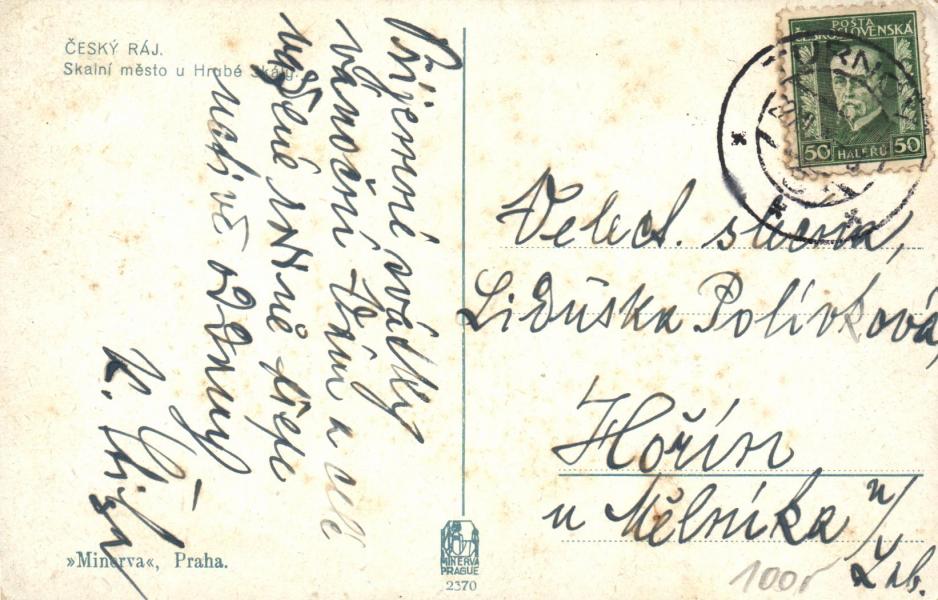 ČESKÝ RÁJ.
Skalní město u Hrubé Skály.
Příjemné svátky
vánoční Vám a
vážené
uctivě oddaný
K.
»Minerva«, Praha.
MINERVA
PRAGUE
2370
POŠTA
ČESKOSLOVENSKÁ
50 HALÉŘŮ 50
Velect. slečna,
Liduška Polívková,
Hořín
u Mělníka n/
Lab.
100,-